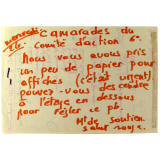 mercredi
camarades du
24. Comité d'action 6e.
Nous vous avons pris
un peu de papier pour
affiches (c'était urgent)
pouvez-vous descendre
à l'étage en dessous
pour régler ce pb.
Mt de soutien